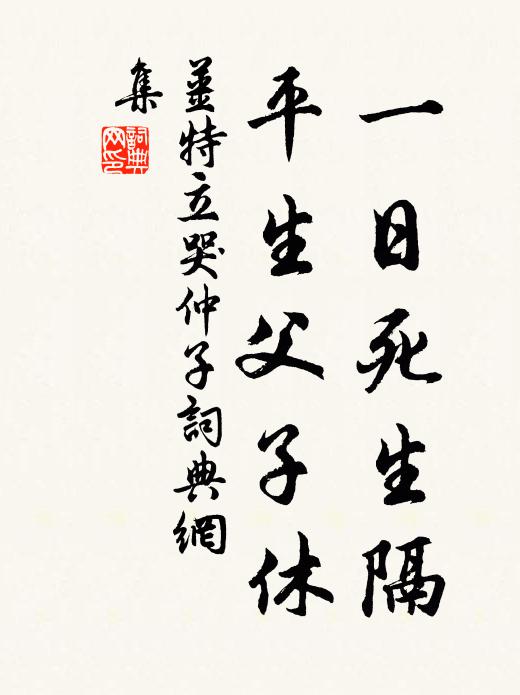 一日死生隔
平生父子休
姜特立哭仲子詞典網
集
詞典网印